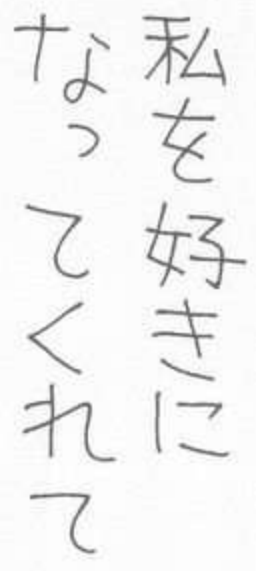 私を好きに
なってくれて